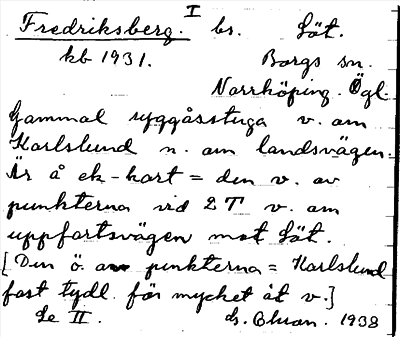 I
Fredriksberg. bs. Löt.
kb 1931. Borgs sn.
Norrköping. Ögl.
Gammal ryggåsstuga v. om
Karlslund n. om landsvägen.
Är å ek-kart = den v. av
punkterna vid 2 T v. om
uppfartsvägen mot Löt.
[Den ö. av punkterna = Karlslund
fast tydl. för mycket åt v.]
Se II. G. Ehran. 1938